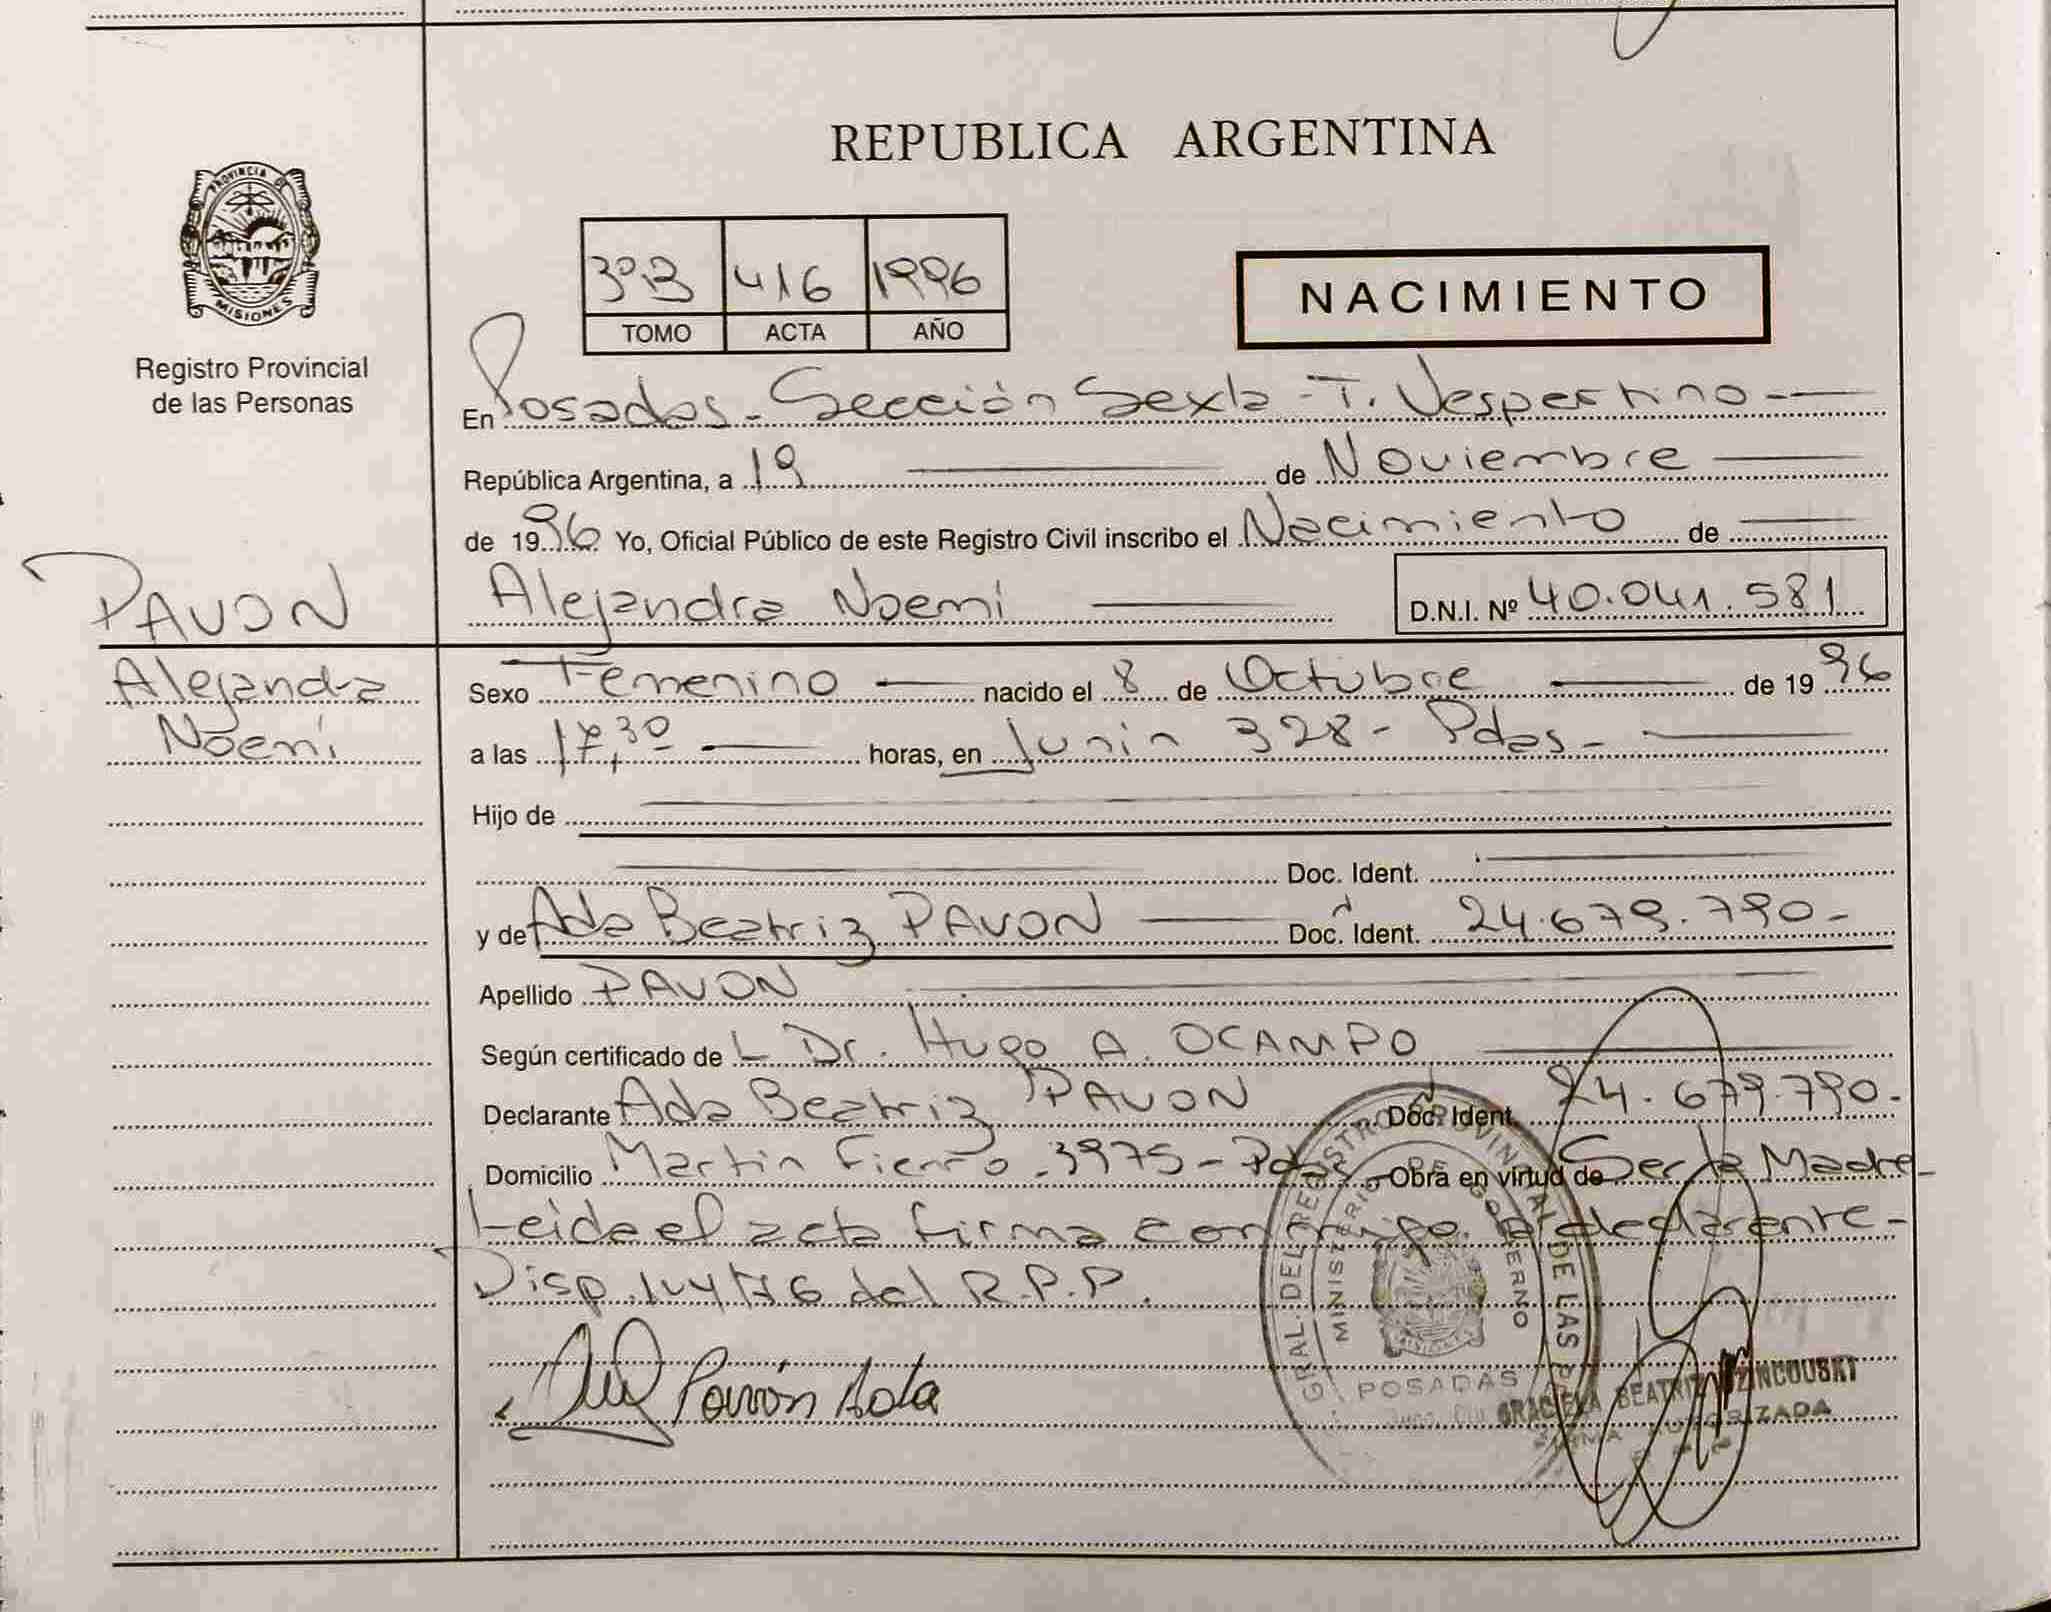 REPUBLICA ARGENTINA
PROVINCIA DE
MISIONES
Registro Provincial
de las Personas
3º B 416 1996
TOMO ACTA AÑO
NACIMIENTO
En Posadas - Sección Sexta - T. Vespertino -
República Argentina, a 19 de Noviembre
de 1996 Yo, Oficial Público de este Registro Civil inscribo el Nacimiento de
PAVON
Alejandra Noemí D.N.I. Nº 40.041.581
Alejandra
Noemí
Sexo Femenino nacido el 8 de Octubre de 1996
a las 17,30 horas, en Junin 328 - Pdas -
Hijo de
Doc. Ident.
y de Ada Beatriz PAVON Doc. Ident. 24.679.790-
Apellido PAVON
Según certificado de L Dr. Hugo A. OCAMPO
Declarante Ada Beatriz PAVON Doc. Ident. 24.679.790-
Domicilio Martin Fierro 3975 - Pdas - Obra en virtud de Ser la Madre -
Leida el acta firma conmigo la declarante -
Disp. 144/76 del R.P.P.
Pavón Ada
GRAL. DEL REGISTRO PROVINCIAL DE LAS
MINISTERIO DE GOBIERNO
POSADAS
GRACIELA BEATRIZ
FIRMA AUTORIZADA